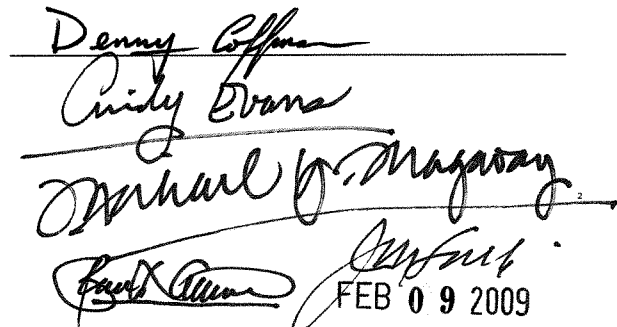 Denny Coffman
Cindy Evans
Michael Y. Magaoay
2
FEB 09 2009